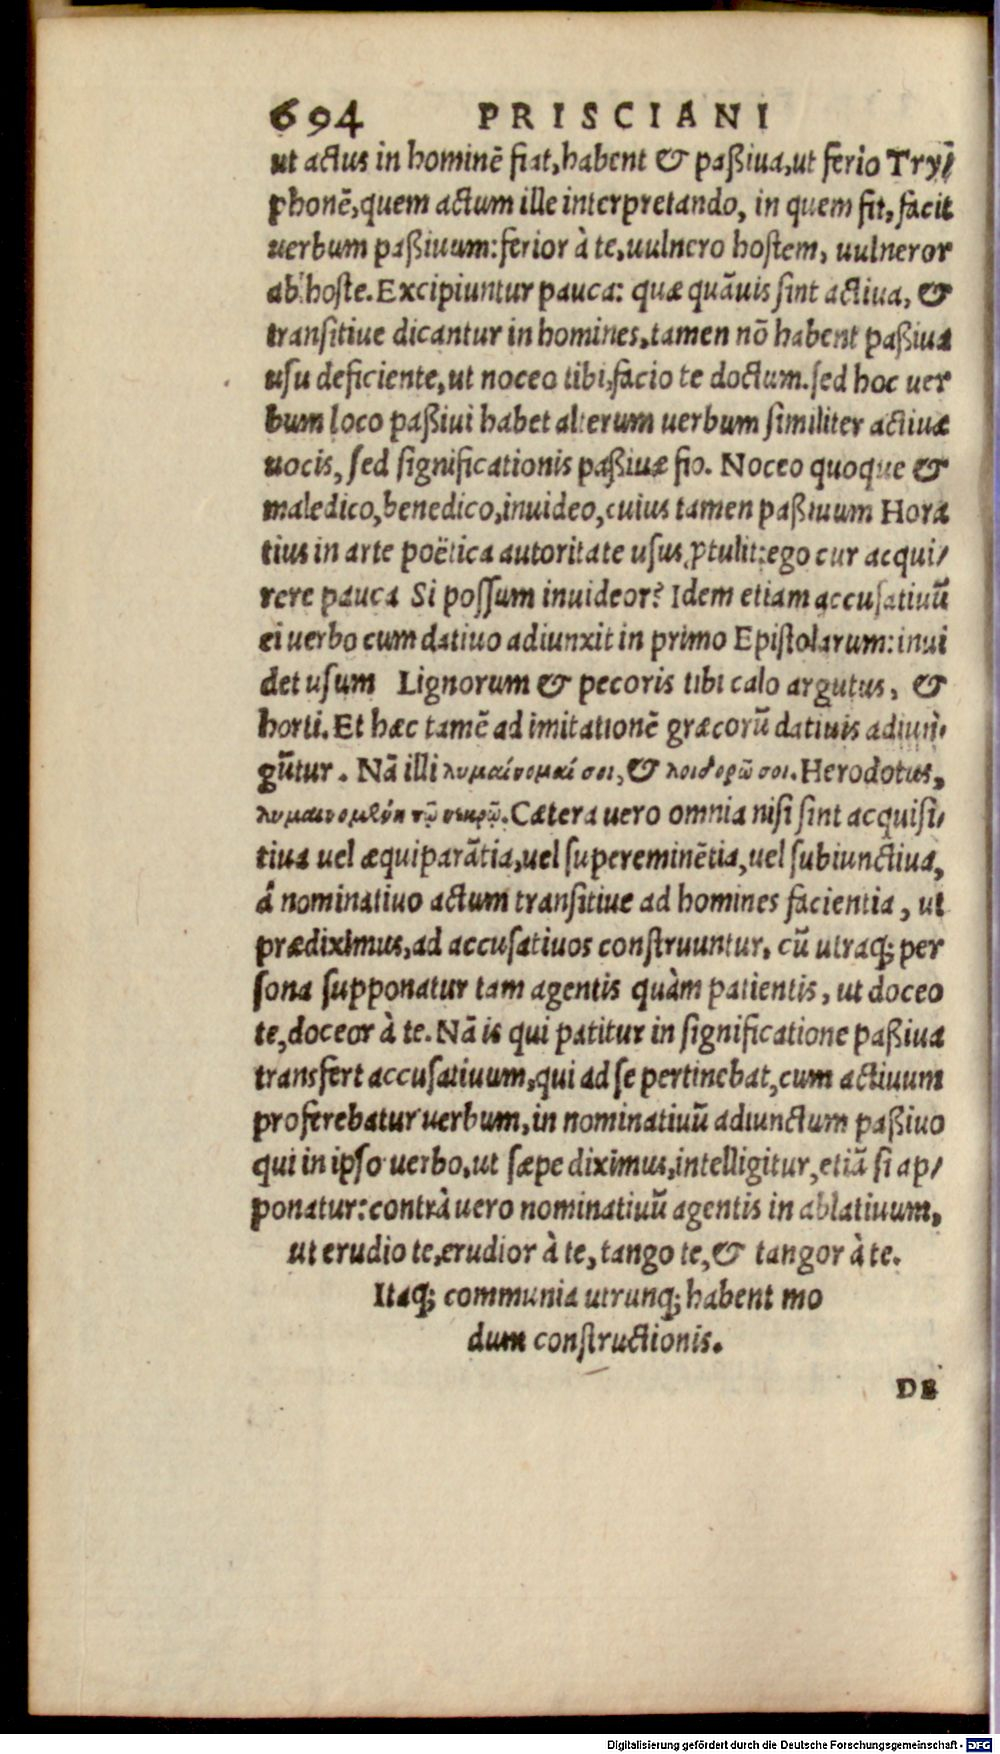 694 PRISCIANI
ut actus in hominē fiat, habent & paßiua, ut ferio Try⸗
phonē, quem actum ille interpretando, in quem fit, facit
uerbum paßiuum: ferior à te, uulnero hostem, uulneror
ab hoste. Excipiuntur pauca: quæ quāuis sint actiua, &
transitiue dicantur in homines, tamen nō habent paßiua
usu deficiente, ut noceo tibi, facio te doctum. sed hoc uer
bum loco paßiui habet alterum uerbum similiter actiuæ
uocis, sed significationis paßiuæ fio. Noceo quoque &
maledico, benedico, inuideo, cuius tamen paßiuum Hora
tius in arte poëtica autoritate usus ꝓtulit: ego cur acqui⸗
rere pauca Si possum inuideor? Idem etiam accusatiuū
ei uerbo cum datiuo adiunxit in primo Epistolarum: inui
det usum Lignorum & pecoris tibi calo argutus, &
horti. Et hæc tamē ad imitationē græcorū datiuis adiun⸗
gūtur. Nā illi λυμαίνομαί σοι, & λοιδορῶ σοι. Herodotus,
λυμαινομένη τῷ νεκρῷ. Cætera uero omnia nisi sint acquisi⸗
tiua uel æquiparātia, uel supereminētia, uel subiunctiua,
à nominatiuo actum transitiue ad homines facientia, ut
prædiximus, ad accusatiuos construuntur, cū utraq; per
sona supponatur tam agentis quàm patientis, ut doceo
te, doceor à te. Nā is qui patitur in significatione paßiua
transfert accusatiuum, qui ad se pertinebat, cum actiuum
proferebatur uerbum, in nominatiuū adiunctum paßiuo
qui in ipso uerbo, ut sæpe diximus, intelligitur, etiā si ap⸗
ponatur: contrà uero nominatiuū agentis in ablatiuum,
ut erudio te, erudior à te, tango te, & tangor à te.
Itaq; communia utrunq; habent mo
dum constructionis.
DE
Digitalisierung gefördert durch die Deutsche Forschungsgemeinschaft - DFG